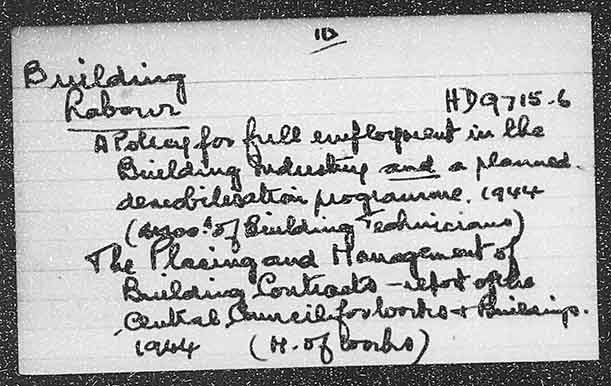 10
Building
Labour
HD9715.6
A Policy for full employment in the
Building Industry and a planned
demobilisation programme. 1944
(Assoc. of Building Technicians)
The Placing and Management of
Building Contracts - report of the
Central Council for Works & Buildings.
1944 (M. of Works)